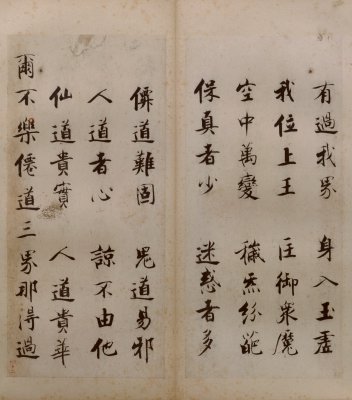 有過我界 身入玉虛
我位上王 匡御衆魔
空中萬變 穢炁紛葩
保真者少 迷惑者多
僊道難固 鬼道易邪
人道者心 諒不由他
仙道貴實 人道貴華
爾不樂僊道三界那得過